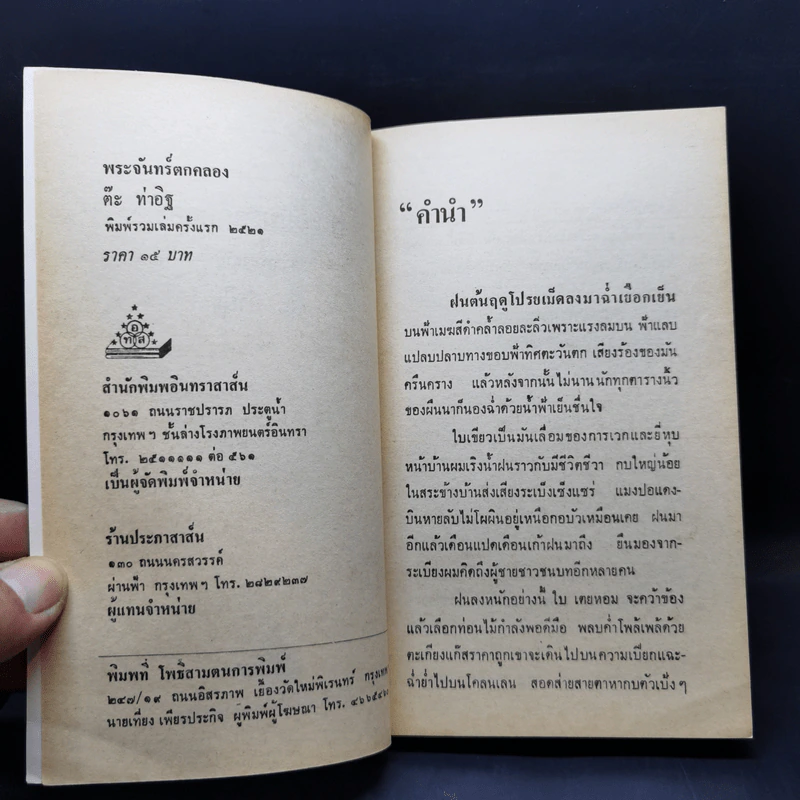 พระจันทร์ตกคลอง
ต๊ะ ท่าอิฐ
พิมพ์รวมเล่มครั้งแรก ๒๕๒๑
ราคา ๑๕ บาท
อ
ท ส
สำนักพิมพ์อินทราสาส์น
๑๐๖๑ ถนนราชปรารภ ประตูน้ำ
กรุงเทพ ฯ ชั้นล่างโรงภาพยนตร์อินทรา
โทร. ๒๕๑๑๑๑๑ ต่อ ๕๖๑
เป็นผู้จัดพิมพ์จำหน่าย
ร้านประภาสาส์น
๑๓๐ ถนนนครสวรรค์
ผ่านฟ้า กรุงเทพ ฯ โทร. ๒๘๒๙๒๓๗
ผู้แทนจำหน่าย
พิมพ์ที่ โพธิ์สามตนการพิมพ์
๒๔๗/๑๙ ถนนอิสรภาพ เยื้องวัดใหม่พิเรนทร์ กรุงเทพ
นายเที่ยง เพียรประกิจ ผู้พิมพ์ผู้โฆษณา โทร.
“คำนำ”
ฝนต้นฤดูโปรยเม็ดลงมาฉ่ำเยือกเย็น
บนฟ้าเมฆสีดำคล้ำลอยละลิ่วเพราะแรงลมบน ฟ้าแลบ
แปลบปลาบทางขอบฟ้าทิศตะวันตก เสียงร้องของมัน
ครืนคราง แล้วหลังจากนั้นไม่นานนักทุกตารางนิ้ว
ของผืนนาก็นองฉ่ำด้วยน้ำฟ้าเย็นชื่นใจ
ใบเขียวเป็นมันเลื่อมของการเวกและยี่หุบ
หน้าบ้านผมเริงน้ำฝนราวกับมีชีวิตชีวา กบใหญ่น้อย
ในสระข้างบ้านส่งเสียงระเบ็งเซ็งแซ่ แมงปอแดง-
บินหายลับไม่โผผินอยู่เหนือกอบัวเหมือนเคย ฝนมา
อีกแล้วเดือนแปดเดือนเก้าฝนมาถึง ยืนมองจาก-
ระเบียงผมคิดถึงผู้ชายชาวชนบทอีกหลายคน
ฝนลงหนักอย่างนี้ ใบ เตยหอม จะคว้าข้อง
แล้วเลือกท่อนไม้กำลังพอดีมือ พลบค่ำโพล้เพล้ด้วย
ตะเกียงแก๊สราคาถูกเขาจะเดินไปบนความเปียกแฉะ-
ฉ่ำย่ำไปบนโคลนเลน สอดส่ายสายตาหากบตัวเป้ง ๆ